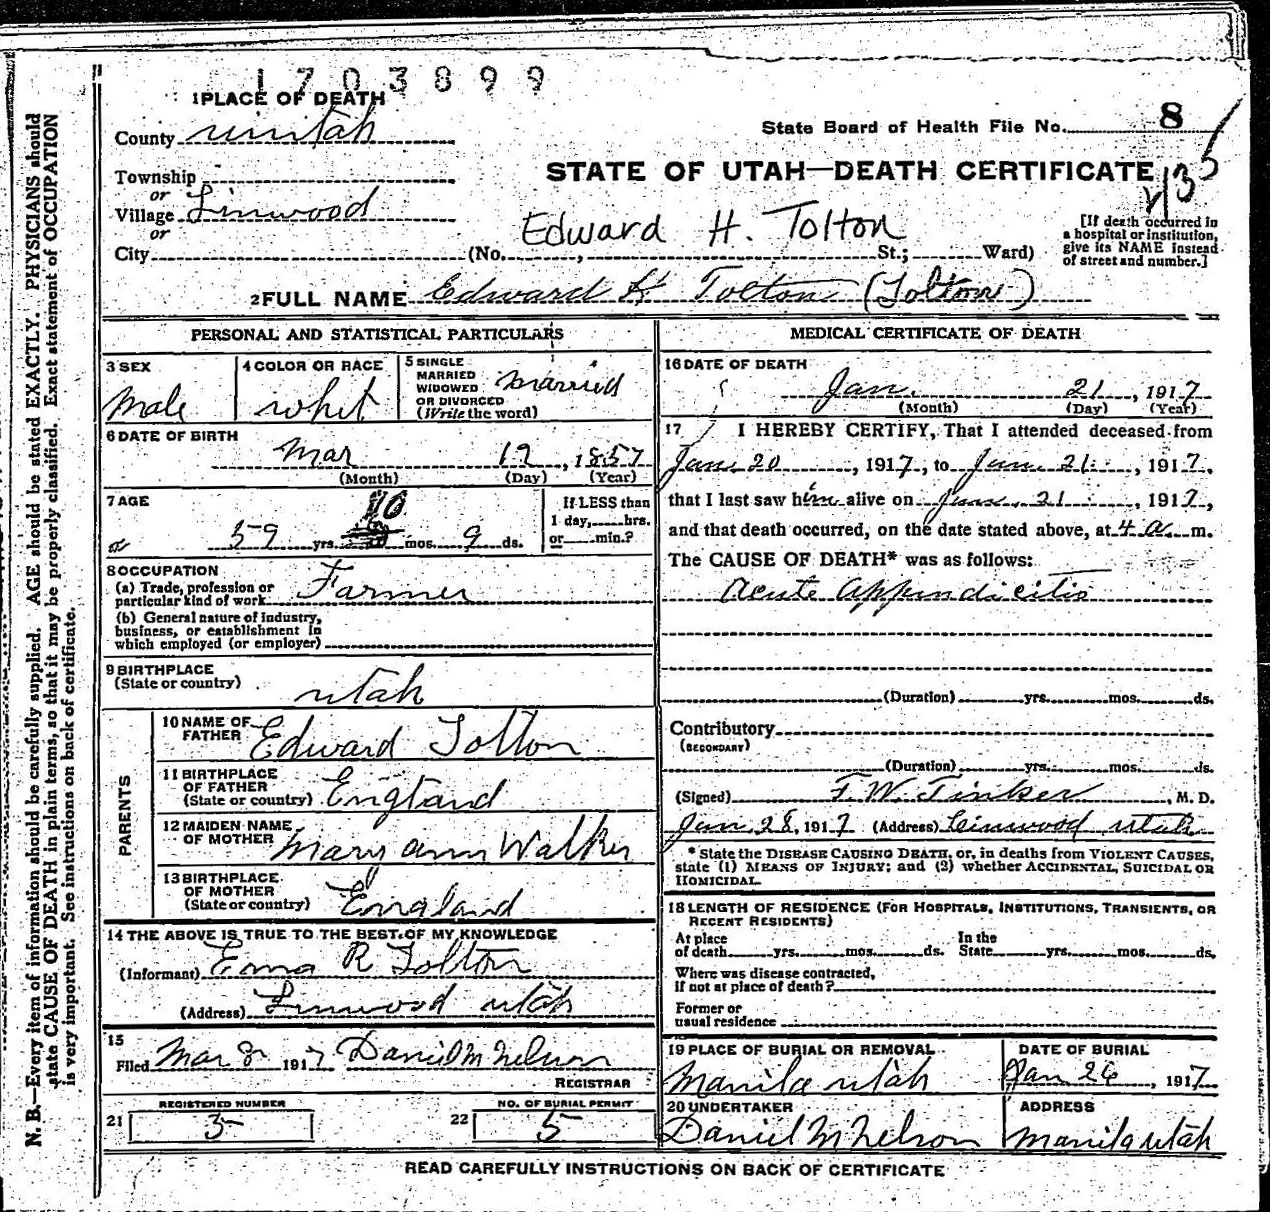 1703899
1 PLACE OF DEATH
County Uintah
State Board of Health File No. 8
Township
or
STATE OF UTAH—DEATH CERTIFICATE
435
Village Linwood
or
Edward H. Tolton
[If death occurred in a hospital or institution, give its NAME instead of street and number.]
City (No. , St.; Ward)
2 FULL NAME Edward H Tolton (Tolton)
PERSONAL AND STATISTICAL PARTICULARS
3 SEX
Male
4 COLOR OR RACE
whit
5 SINGLE
MARRIED
WIDOWED
OR DIVORCED
(Write the word)
married
6 DATE OF BIRTH
Mar 12, 1857
(Month) (Day) (Year)
7 AGE
59 yrs. 10 mos. 9 ds.
If LESS than
1 day, hrs.
or min.?
8 OCCUPATION
(a) Trade, profession or
particular kind of work Farmer
(b) General nature of industry,
business, or establishment in
which employed (or employer)
9 BIRTHPLACE
(State or country) Utah
PARENTS
10 NAME OF
FATHER Edward Tolton
11 BIRTHPLACE
OF FATHER
(State or country) England
12 MAIDEN NAME
OF MOTHER Mary Ann Walker
13 BIRTHPLACE
OF MOTHER
(State or country) England
14 THE ABOVE IS TRUE TO THE BEST OF MY KNOWLEDGE
(Informant) Ema R Tolton
(Address) Linwood Utah
15
Filed Mar 8 1917 Daniel M Nelson
REGISTRAR
REGISTERED NUMBER
21 3
NO. OF BURIAL PERMIT
22 5
MEDICAL CERTIFICATE OF DEATH
16 DATE OF DEATH
Jan. 21, 1917
(Month) (Day) (Year)
17 I HEREBY CERTIFY, That I attended deceased from
Jan. 20, 1917, to Jan. 21, 1917,
that I last saw him alive on Jan. 21, 1917,
and that death occurred, on the date stated above, at 4 a. m.
The CAUSE OF DEATH* was as follows:
Acute appendicitis
(Duration) yrs. mos. ds.
Contributory
(SECONDARY)
(Duration) yrs. mos. ds.
(Signed) F. W. Tinker, M. D.
Jan. 28, 1917 (Address) Linwood Utah
* State the DISEASE CAUSING DEATH, or, in deaths from VIOLENT CAUSES,
state (1) MEANS OF INJURY; and (2) whether ACCIDENTAL, SUICIDAL OR
HOMICIDAL.
18 LENGTH OF RESIDENCE (FOR HOSPITALS, INSTITUTIONS, TRANSIENTS, OR
RECENT RESIDENTS)
At place
of death yrs. mos. ds.
In the
State yrs. mos. ds.
Where was disease contracted,
if not at place of death?
Former or
usual residence
19 PLACE OF BURIAL OR REMOVAL
Manila Utah
DATE OF BURIAL
Jan 26, 1917
20 UNDERTAKER
Daniel M Nelson
ADDRESS
Manila Utah
READ CAREFULLY INSTRUCTIONS ON BACK OF CERTIFICATE
N. B.—Every item of information should be carefully supplied. AGE should be stated EXACTLY. PHYSICIANS should
state CAUSE OF DEATH in plain terms, so that it may be properly classified. Exact statement of OCCUPATION
is very important. See instructions on back of certificate.